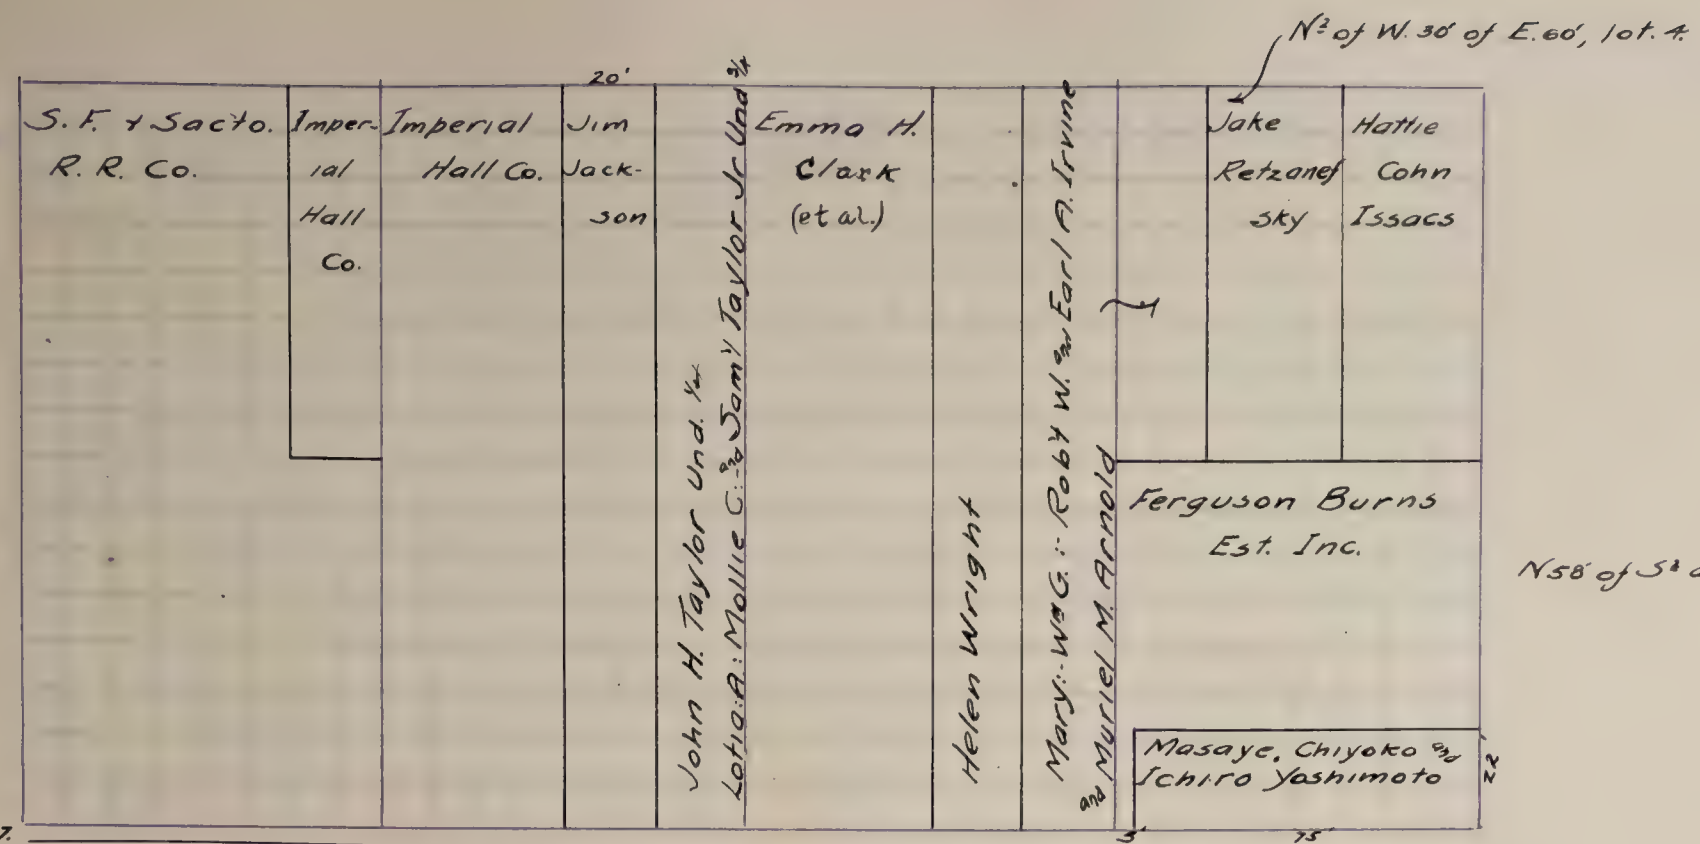 N½ of W. 30' of E. 60', lot. 4.
20'
S. F. & Sacto.
R. R. Co.
Imper-
ial
Hall
Co.
Imperial
Hall Co.
Jim
Jack-
son
John H. Taylor Und. ¼
Lotia: A: Mollie C: and Sam'l Taylor Jr Und ¾
Emma H.
Clark
(et al.)
Helen Wright
Mary: Wm G.: Rob't W. and Earl A. Irvine
and Muriel M. Arnold
Jake
Retzanef
sky
Hattie
Cohn
Issacs
Ferguson Burns
Est. Inc.
N58' of S½
Masaye, Chiyoko and
Ichiro Yoshimoto
22'
7.
3'
75'